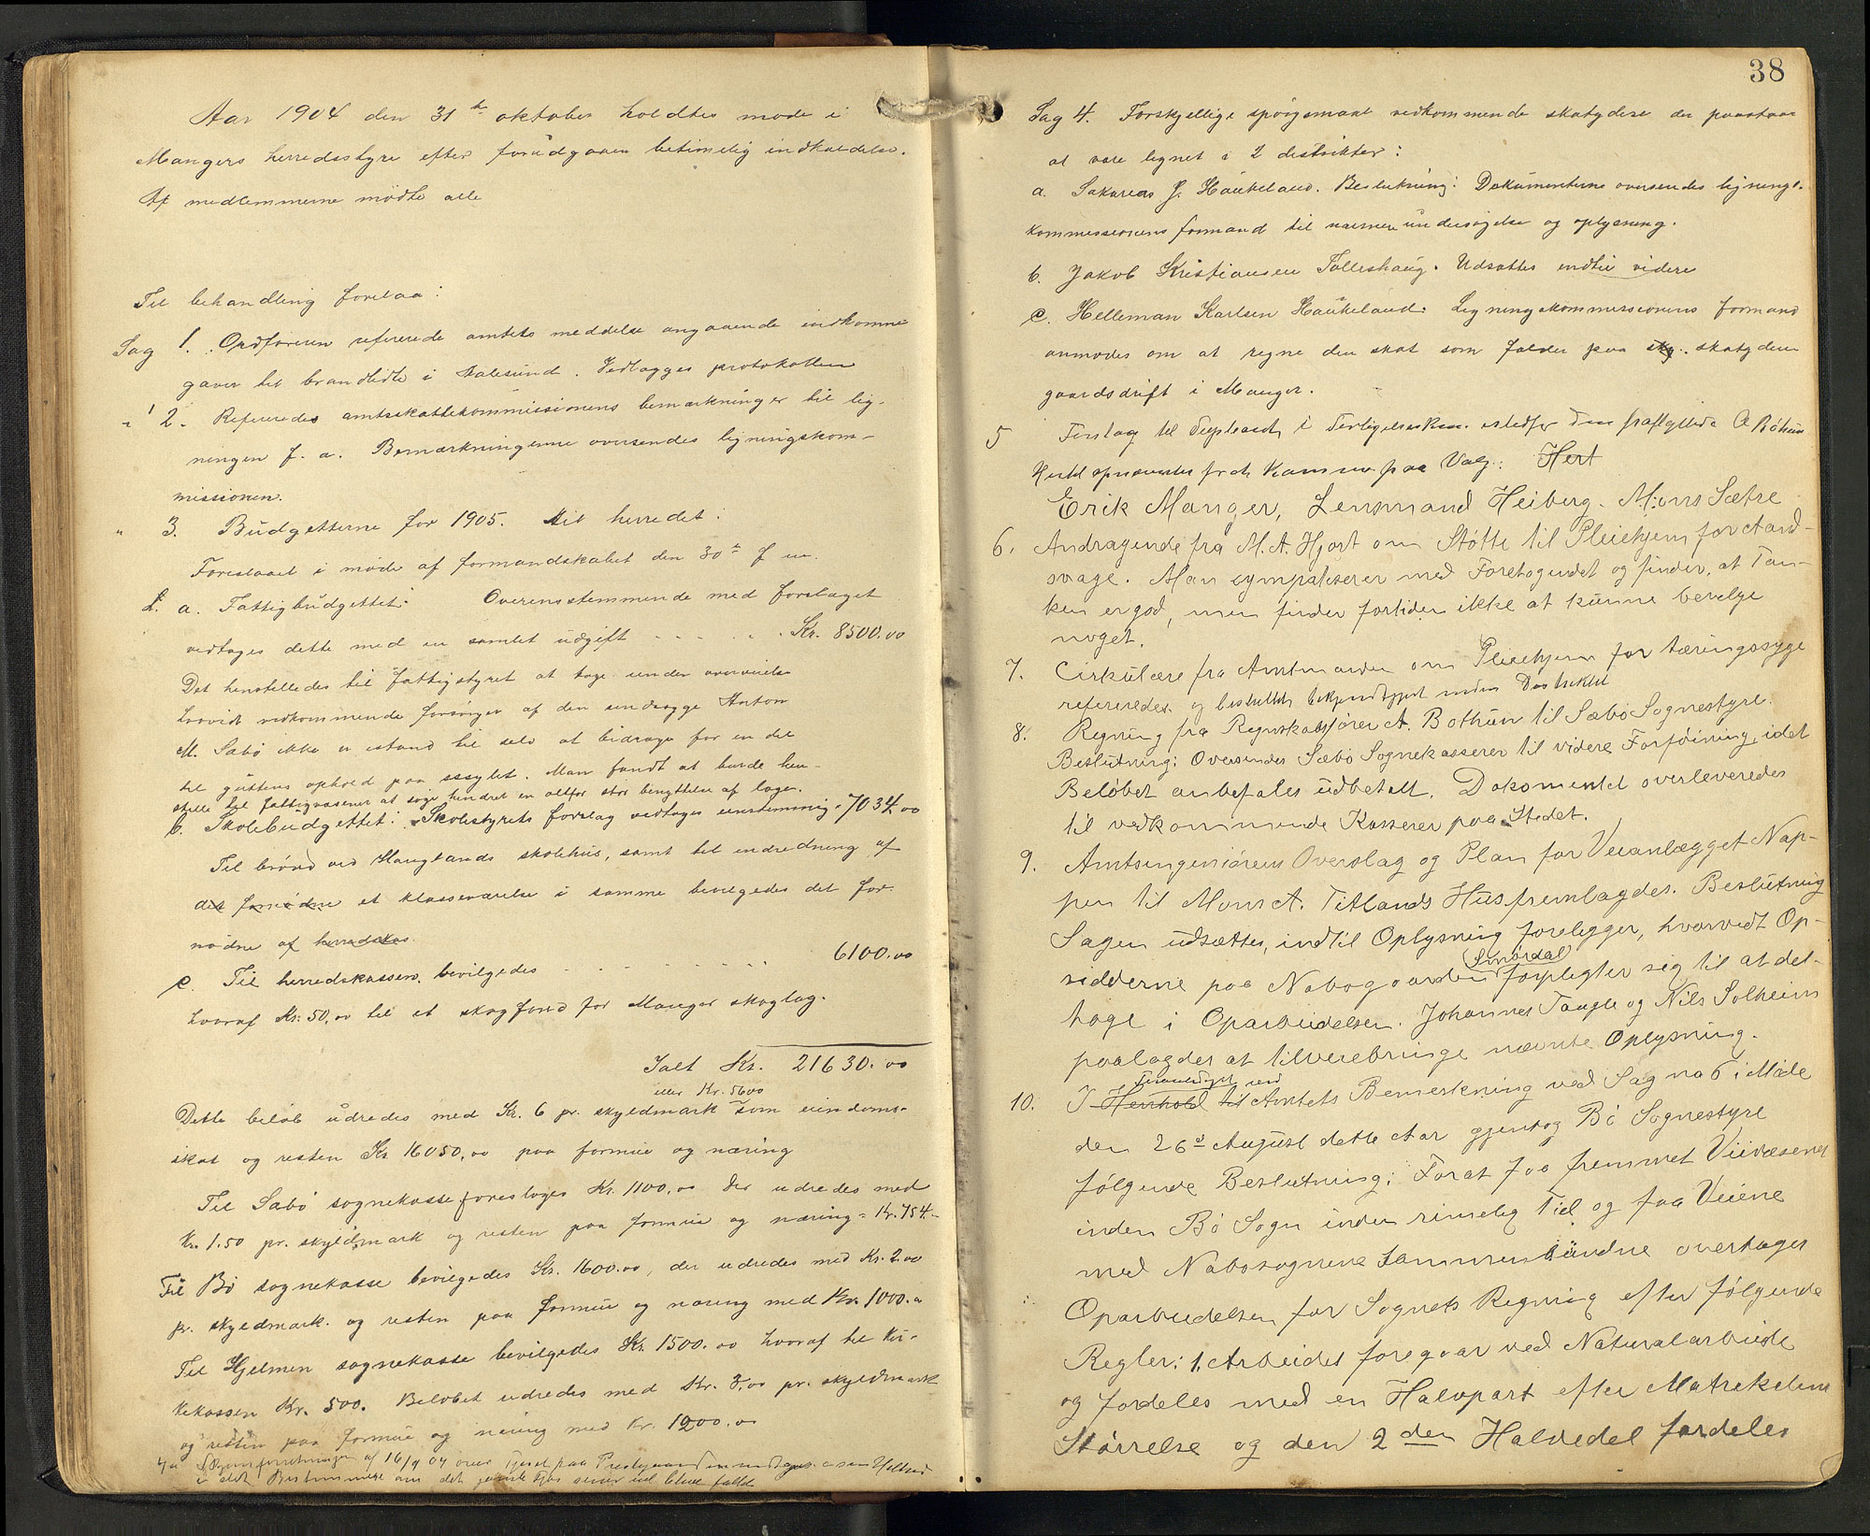 Aar 1904 den 31te oktober holdtes møde i
Mangers herredsstyre efter forudgaaen betimelig indkaldelse.
Af medlemmerne mødte alle
Til behandling forelaa:
Sag 1. Ordføreren refererede amtets meddelse angaaende indkomne
gaver til brandlidte i Aalesund. Vedlægges protokollen
" 2. Refereredes amtsskattekommissionens bemærkninger til lig-
ningen f. a. Bemærkningerne oversendes ligningskom-
missionen.
" 3. Budgetterne for 1905. til herredet:
Foreslaaet i møde af formandskabet den 30te f m.
a. Fattigbudgettet: Overensstemmende med forslaget
vedtoges dette med en samlet udgift - - - - Kr. 8500.00
Det henstilledes til fattigstyret at tage under overveielse
hvorvidt vedkommende forsørger af den sindssyge Anton
M. Sæbø ikke er istand til selv at bidrage for en del
til guttens ophold paa asylet. Man fandt at burde hen-
stille til fattigvæsenet at søge hindret en altfor stor benyttelse af læge.
b. Skolebudgettet: Skolestyrets forslag vedtoges enstemmig = 7034.00
Til brønd ved Hauglands skolehus, samt til endredning af
det fornødne et klasseværelse i samme bevilgedes det for-
nødne af herredskas.
c. Til herredskassen bevilgedes - - - - - 6100.00
hvoraf Kr. 50,00 til et skogfond for Manger skoglag.
Ialt Kr. 21630.00
eller Kr. 5600
Dette beløb udredes med Kr. 6 pr. skyldmark som eiendoms-
skat og resten Kr 16050,00 paa formue og næring
Til Sæbø sognekasse foresloges Kr. 1100,00 der udredes med
Kr. 1.50 pr. skyldmark og resten paa formue og næring = Kr. 754.-
Til Bø sognekasse bevilgedes Kr. 1600.00, der udredes med Kr. 2.00
pr. skyldmark. og resten paa formue og næring med Kr. 1000.00
Til Hjelmen sognekasse bevilgedes Kr. 1500.00 hvoraf til kir-
kekassen Kr. 500. Beløbet udredes med Kr. 3,00 pr. skyldmark
og resten paa formue og næring med Kr. 1200.00
af 16/9 04 over
38
Sag 4. Forskjellige spørgsmaal vedkommende skatydere der paastaar
at være lignet i 2 distrikter:
a. Sakarias J. Haukeland. Beslutning: Dokumenterne oversendes lignings-
kommissionens formand til nærmere undersøgelse og oplysning.
b. Jakob Kristiansen Tolleshaug. Udsattes indtil videre
c. Helleman Karlsen Haukeland: Ligningskommissionens formand
anmodes om at regne den skat som falder paa sky. skatyderen
gaardsdrift i Manger.
5 Forslag til Suppleant i Forligelseskom. istedfor den fraflyttede A Bóthun
Hertil opnævntes fra Kommunen paa Valg: Hert
Erik Manger, Lensmand Heiberg. Mons Sætre
6. Andragende fra M. A. Hjort om Støtte til Pleiehjem for Aand-
svage. Man sympatiserer med Foretagendet og finder, at Tan-
ken er god, men finder fortiden ikke at kunne bevilge
noget.
7. Cirkulære fra Amtmanden om Pleiehjem for tæringssyge
refereredes og besluttet bekjendtgjort inden Distriktet
8. Regning fra Regnskabsfører A. Bothun til Sæbø Sognestyre.
Beslutning: Oversendes Sæbø Sognekasserer til videre Forføining, idet
Beløbet anbefales udbetalt. Dokomentet overleveredes
til vedkommende Kasserer paa Stedet.
9. Amtsingeniørens Overslag og Plan for Veianlægget Nap-
pen til Mons A. Titlands Hus fremlagdes. Beslutning
Sagen udsættes, indtil Oplysning foreligger, hvorvidt Op-
sidderne paa Nabogaarden Smørdal forpligter sig til at del-
tage i Oparbeidelsen. Johannes Taugle og Nils Solheim
paalagdes at tilveiebringe nævnte Oplysning.
10. I Henhold til Foranlediget ved Amtets Bemerkning ved Sag no 6 i Møde
den 26de August dette Aar gjentog Bø Sognestyre
følgende Beslutning: Forat faa fremmet Veivæsenet
inden Bø Sogn inden rimelig Tid og faa Veiene
med Nabosognene sammenbundne overtages
Oparbeidelsen for Sognets Regning efter følgende
Regler: 1. Arbeidet foregaar ved Naturalarbeide
og fordeles med en Halvpart efter Matrikelens
Størrelse og den 2den Halvdel fordeles